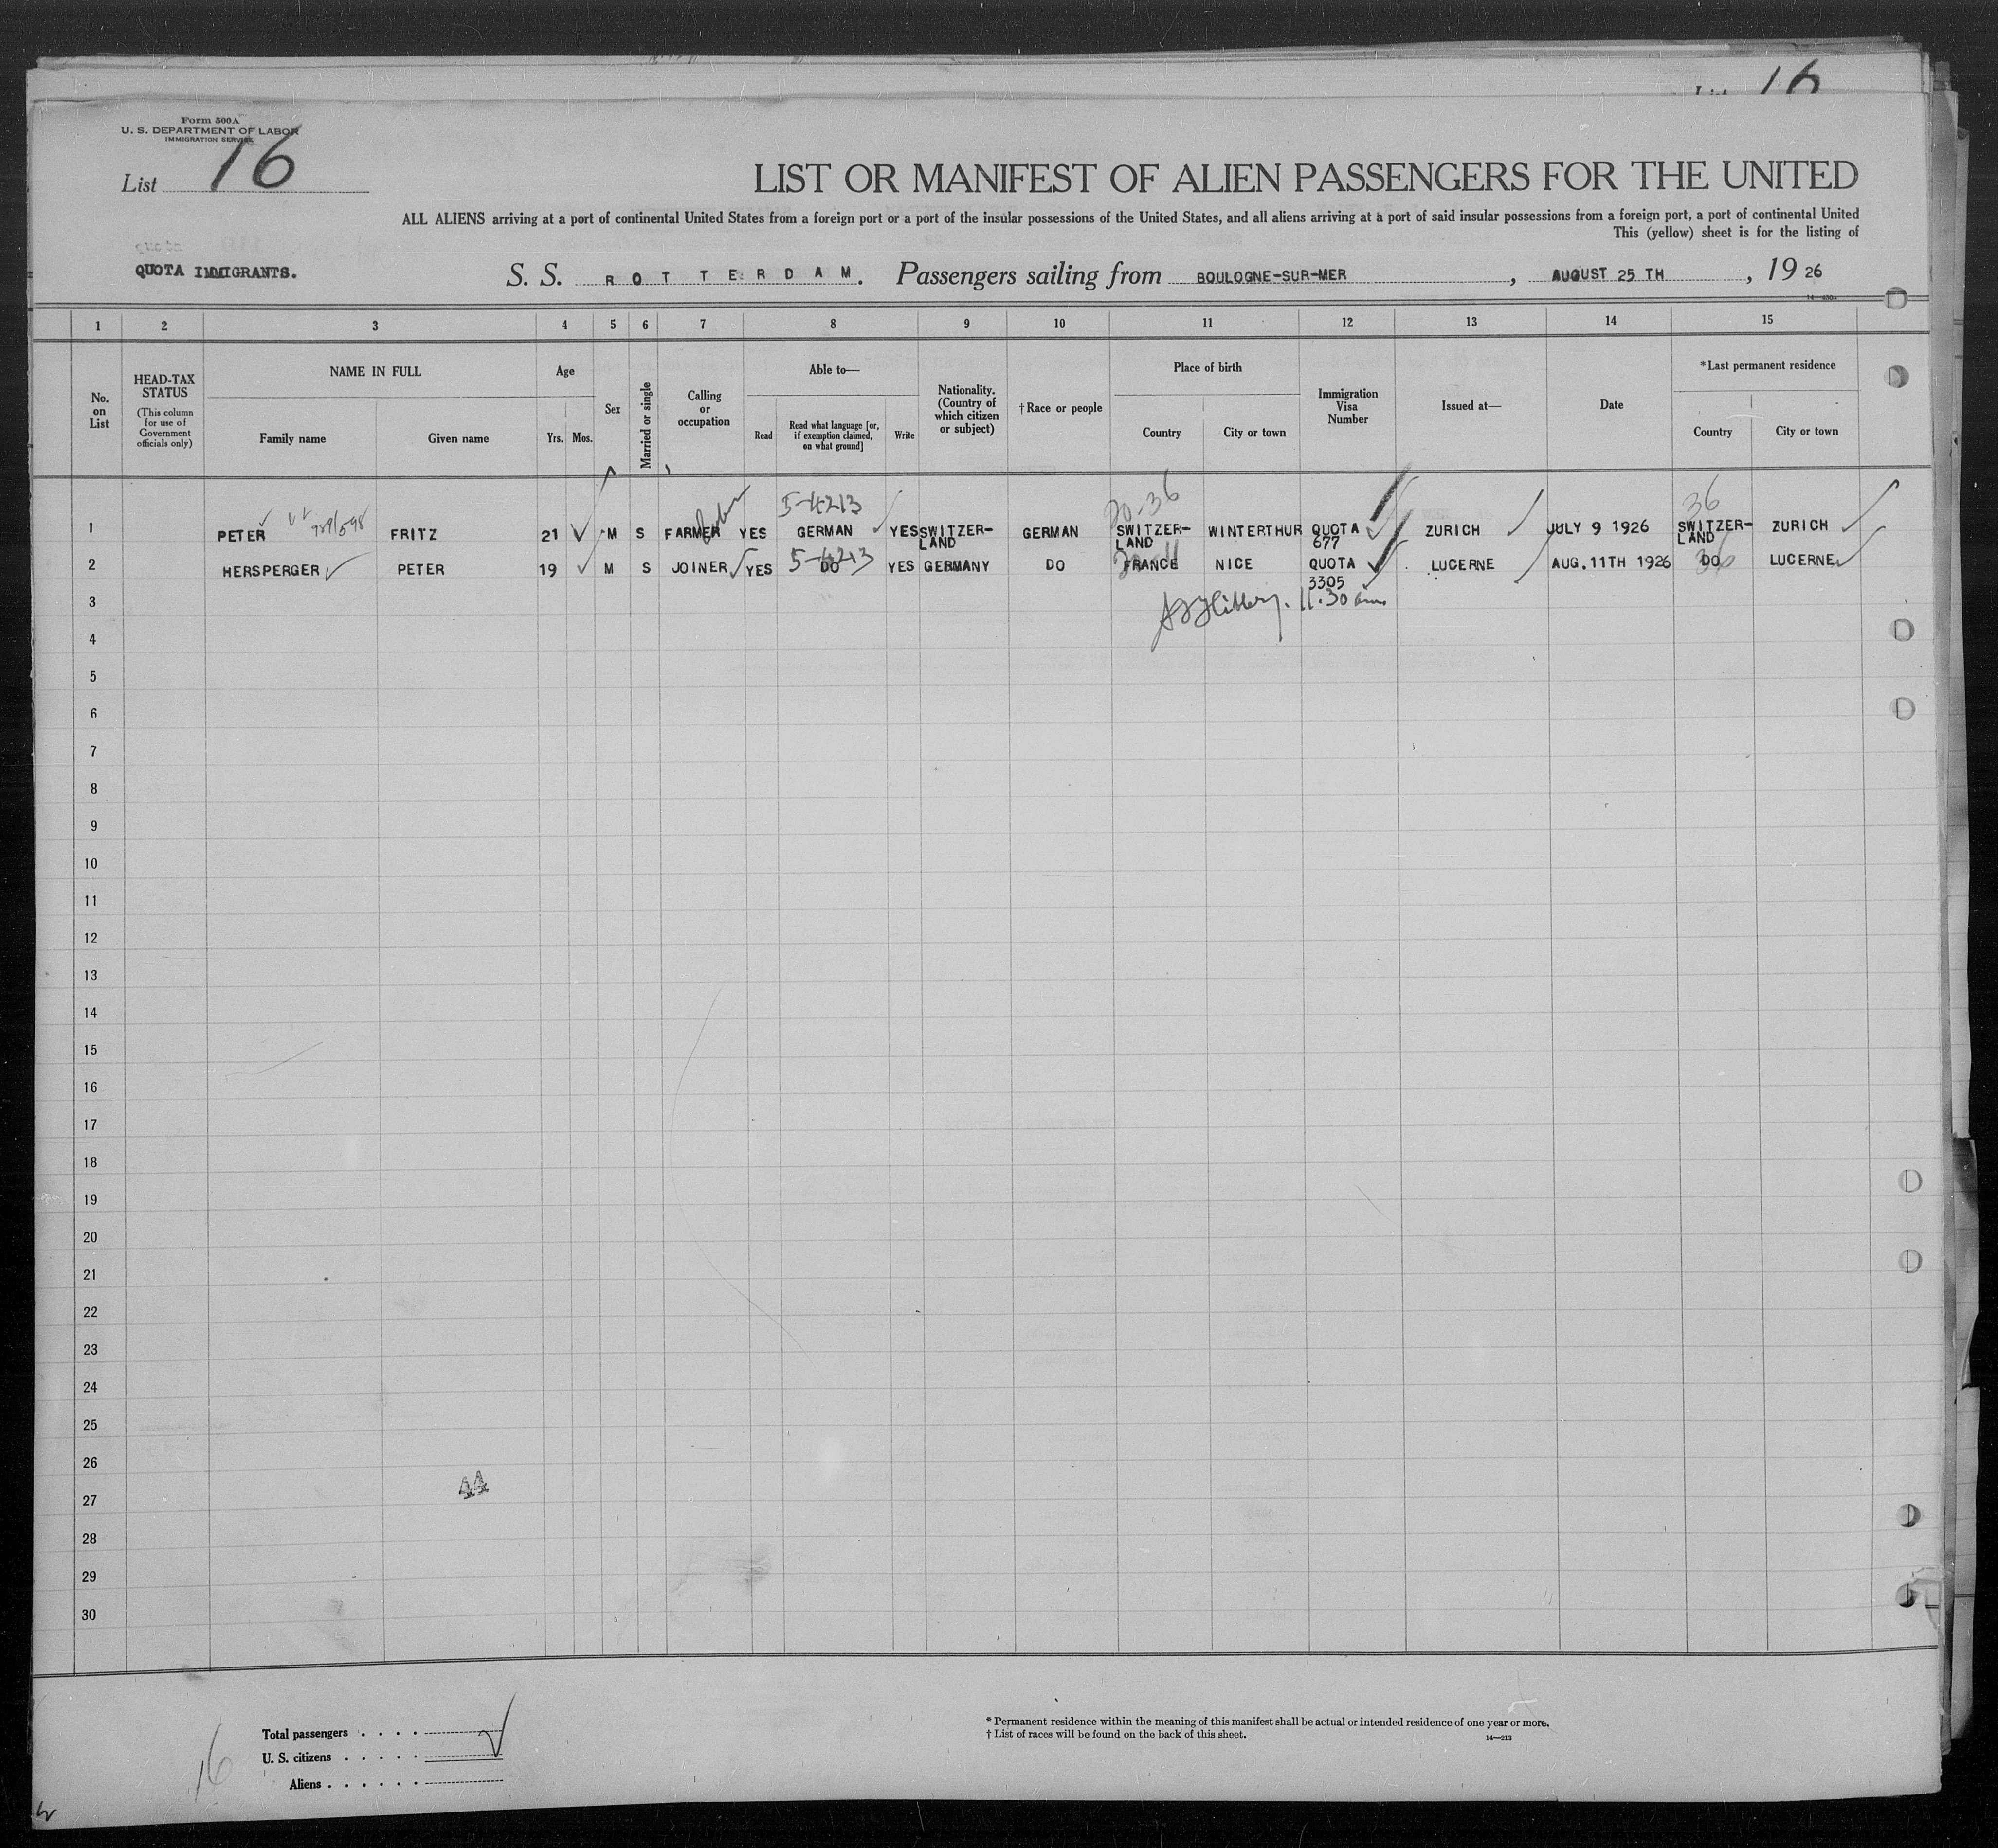 List 16
Form 500A
U. S. DEPARTMENT OF LABOR
IMMIGRATION SERVICE
List 16
LIST OR MANIFEST OF ALIEN PASSENGERS FOR THE UNITED
ALL ALIENS arriving at a port of continental United States from a foreign port or a port of the insular possessions of the United States, and all aliens arriving at a port of said insular possessions from a foreign port, a port of continental United
This (yellow) sheet is for the listing of
QUOTA IMMIGRANTS.
S. S. ROTTERDAM. Passengers sailing from BOULOGNE-SUR-MER, AUGUST 25 TH, 19 26
1 2 3 4 5 6 7 8 9 10 11 12 13 14 15
No. on List
HEAD-TAX STATUS
(This column for use of Government officials only)
NAME IN FULL
Family name Given name
Age
Yrs. Mos.
Sex
Married or single
Calling or occupation
Able to—
Read
Read what language [or, if exemption claimed, on what ground]
Write
Nationality. (Country of which citizen or subject)
† Race or people
Place of birth
Country City or town
Immigration Visa Number
Issued at—
Date
* Last permanent residence
Country City or town
5-4213 20-36 36
1 PETER FRITZ 21 M S FARMER YES GERMAN YES SWITZER-LAND GERMAN SWITZER-LAND WINTERTHUR QUOTA 677 ZURICH JULY 9 1926 SWITZER-LAND ZURICH
5-4213 36
2 HERSPERGER PETER 19 M S JOINER YES DO YES GERMANY DO FRANCE NICE QUOTA 3305 LUCERNE AUG. 11TH 1926 DO LUCERNE
11.30 am
3
4
5
6
7
8
9
10
11
12
13
14
15
16
17
18
19
20
21
22
23
24
25
26
44
27
28
29
30
16
Total passengers . . . .
U. S. citizens . . . . .
Aliens . . . . . .
* Permanent residence within the meaning of this manifest shall be actual or intended residence of one year or more.
† List of races will be found on the back of this sheet.
14—213